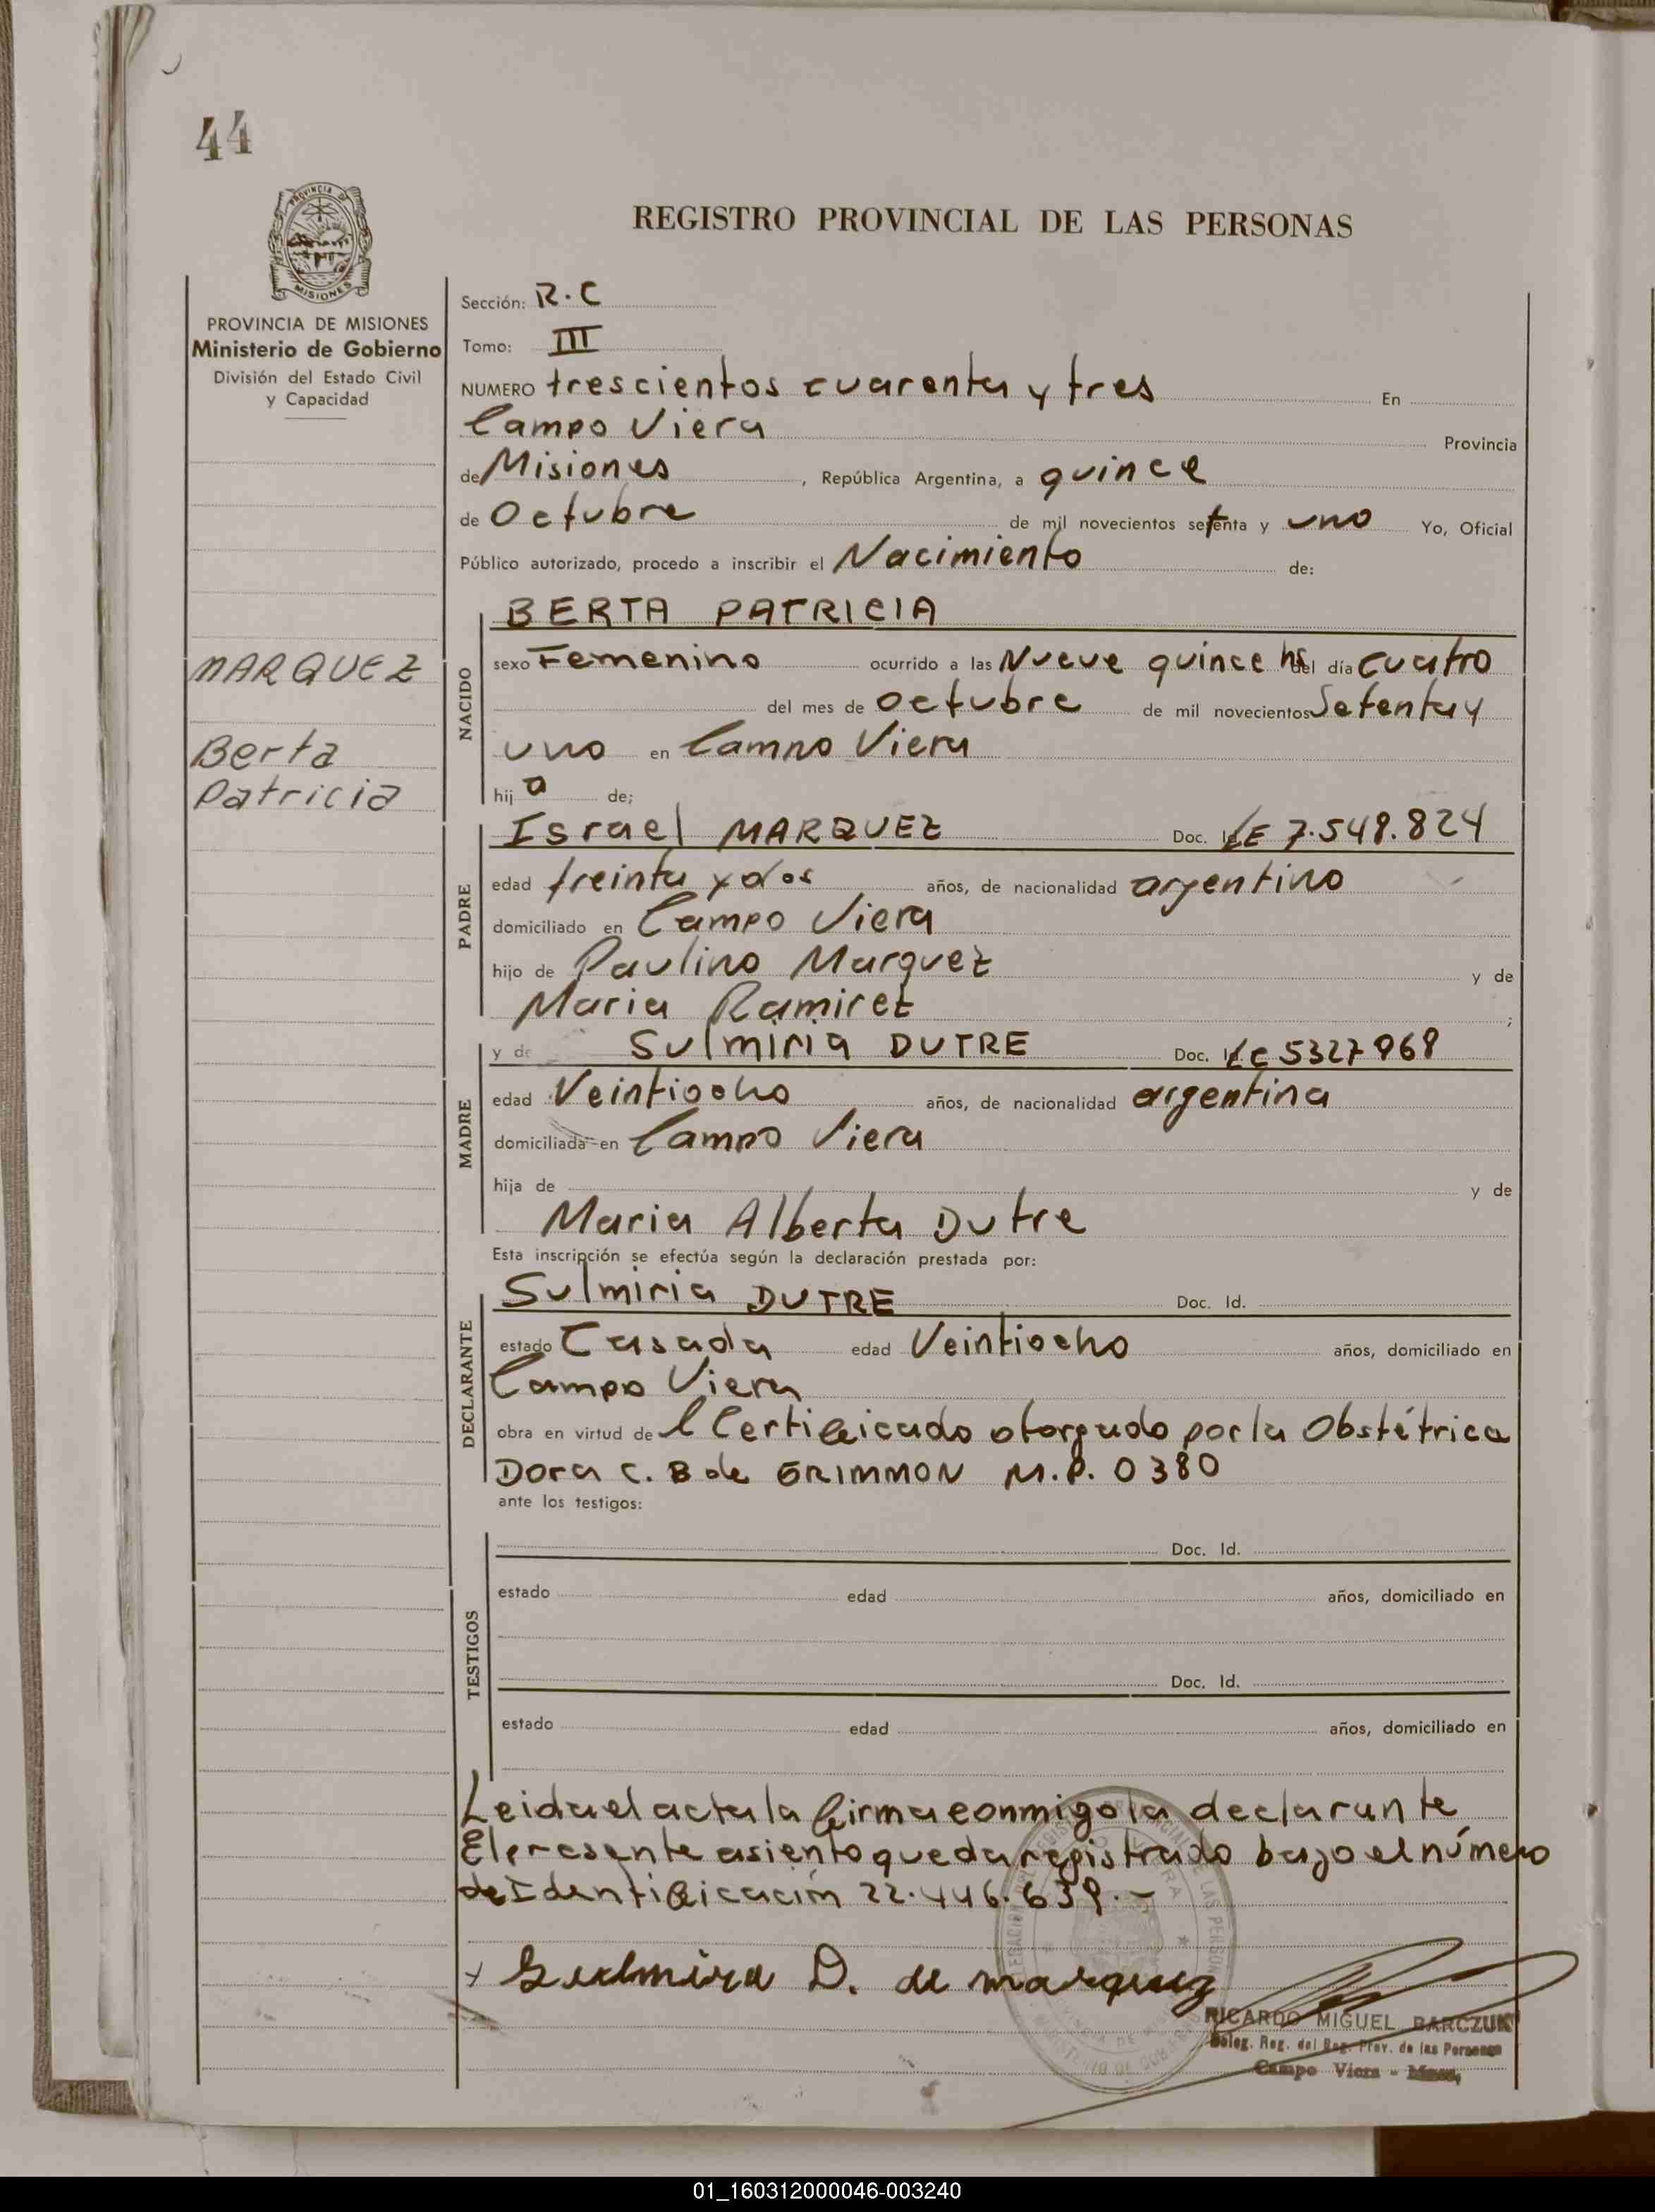 44
PROVINCIA DE MISIONES
Ministerio de Gobierno
División del Estado Civil
y Capacidad
MARQUEZ
Berta
Patricia
REGISTRO PROVINCIAL DE LAS PERSONAS
Sección: R.C
Tomo: III
NUMERO trescientos cuarenta y tres En
Campo Viera Provincia
de Misiones, República Argentina, a quince
de Octubre de mil novecientos setenta y uno Yo, Oficial
Público autorizado, procedo a inscribir el Nacimiento de:
NACIDO
BERTA PATRICIA
sexo Femenino ocurrido a las Nueve quince hs del día cuatro
del mes de octubre de mil novecientos Setenta y
uno en Campo Viera
hija de;
PADRE
Israel MARQUEZ Doc. Id LE 7.548.824
edad treinta y dos años, de nacionalidad argentino
domiciliado en Campo Viera
hijo de Paulino Marquez y de
Maria Ramirez ;
MADRE
y de Sulmiria DUTRE Doc. Id LC 5327968
edad Veintiocho años, de nacionalidad argentina
domiciliada en Campo Viera
hija de y de
Maria Alberta Dutre
Esta inscripción se efectúa según la declaración prestada por:
DECLARANTE
Sulmiria DUTRE Doc. Id.
estado Casada edad Veintiocho años, domiciliado en
Campo Viera
obra en virtud de l Certificado otorgado por la Obstétrica
Dora C. B de GRIMMON M.P. 0380
ante los testigos:
TESTIGOS
Doc. Id.
estado edad años, domiciliado en
Doc. Id.
estado edad años, domiciliado en
Leida el acta la firma conmigo la declarante
El presente asiento queda registrado bajo el número
de Identificación 22.446.639.-
x Sulmira D. de marquez
RICARDO MIGUEL BARCZUK
Deleg. Reg. del Reg. Prov. de las Personas
Campo Viera - Mnes.
01_160312000046-003240